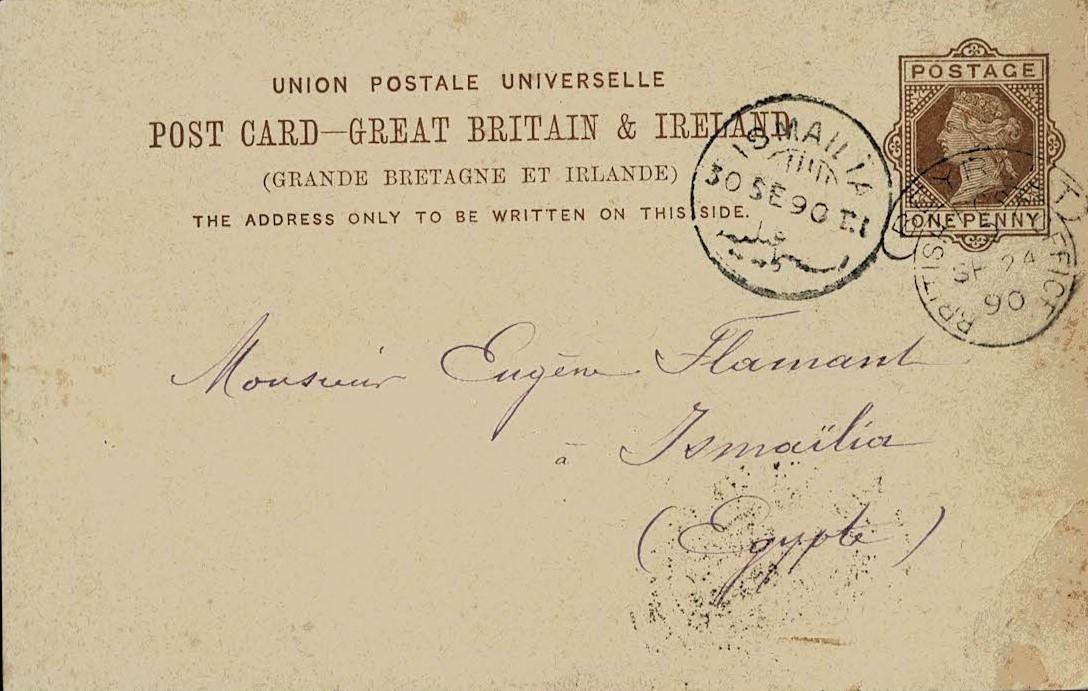 UNION POSTALE UNIVERSELLE
POST CARD—GREAT BRITAIN & IRELAND
(GRANDE BRETAGNE ET IRLANDE)
THE ADDRESS ONLY TO BE WRITTEN ON THIS SIDE.
POSTAGE
ONE PENNY
ISMAILIA
30 SE 90 T.I
BRITISH OFFICE
SP 24
90
Monsieur Eugène Flamant
à Ismaïlia
(Egypte)